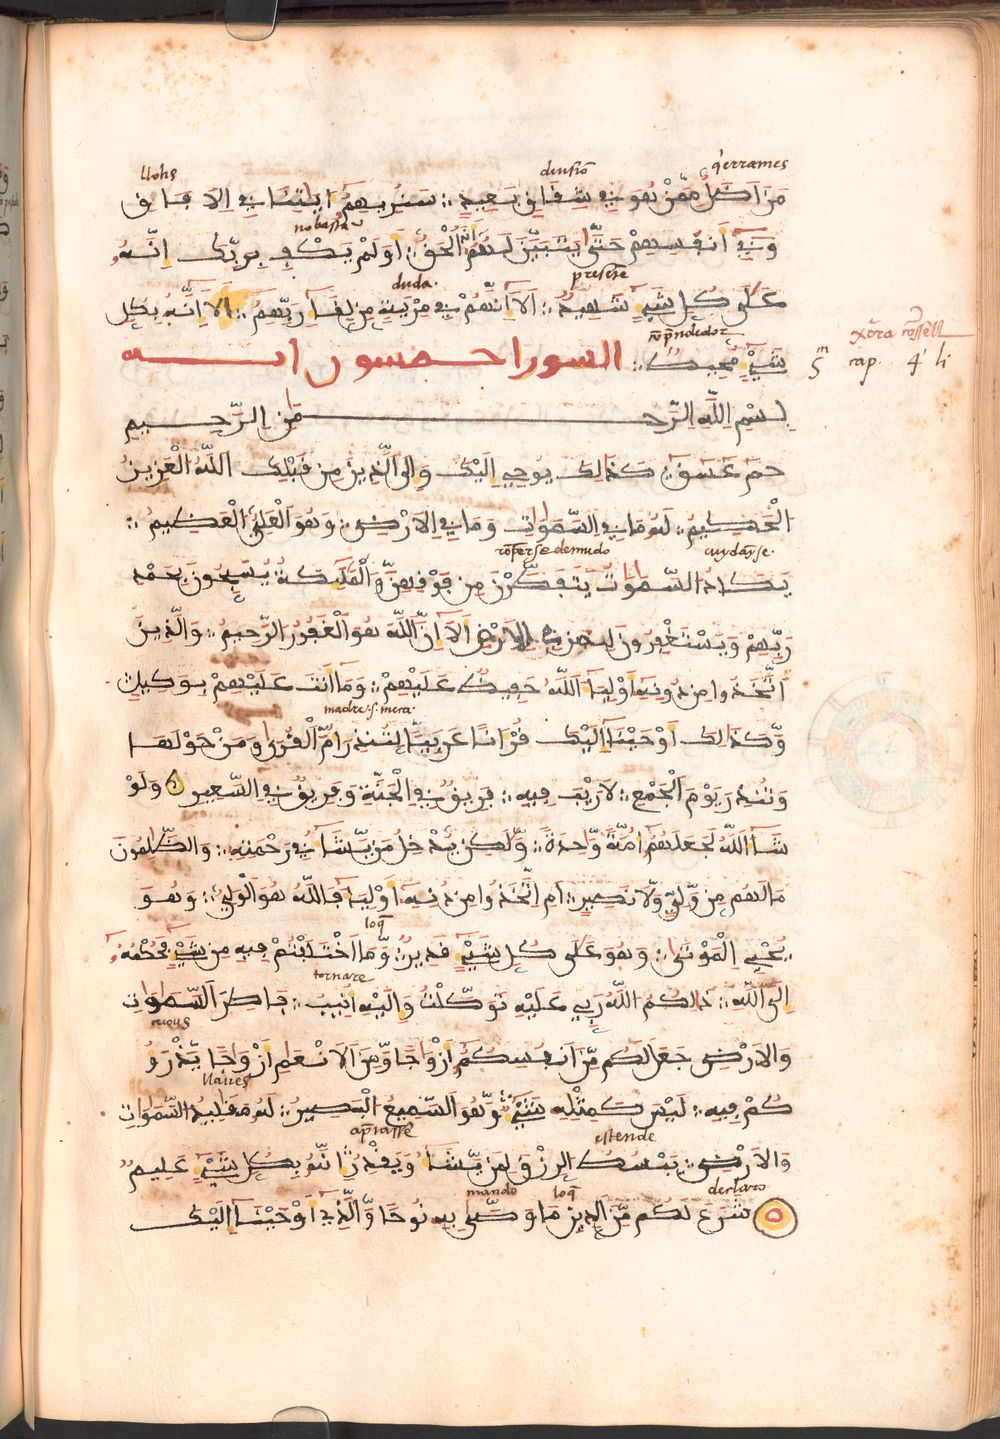 llohs diuisiō q̄errames
مَنَ اَضَلُّ مِمَّنْ هُوَ فِي شِقَاقٍ بَعِيدٍ سَنُرِيهِمُ ءايَتِنَا فِي اِلَافَاقِ
no bassta
وَفِي أَنفُسِهِمْ حَتَّى يَتَبَيَّنَ لَهُمُ أَنَّهُ اُلْحَقُّ اَوَلَمْ يَكْفِ بِرَبِّكَ اَنَّهُ
duda. presente
عَلَى كُلِّ شَيْءٍ شَهِيدٌ اَلَا اِنَّهُمْ فِي مِرْيَةٍ مِن لِقَاءِ رَبِّهِمُ اَلَا اِنَّهُ بِكُلِّ
شَيْءٍ مُّحِيطٌ السورا خمسون ايه
cap. 4 li
بِسْمِ اِللَّهِ اِلرَّحْمَنِ اِلرَّحِيمِ
حمَ عَسَقَ كَذَالِكَ يُوحِي إِلَيْكَ وَإِلَى اَلَّذِينَ مِن قَبْلِكَ اَللَّهُ الْعَزِيزُ
الْحَكِيمُ لَهُ مَا فِي السَّمَوَاتِ وَمَا فِي اِلَارْضِ وَهُوَ الْعَلِيُّ الْعَظِيمُ
ronperse demiedo cuydayse.
يَكَادُ السَّمَوَاتُ يَتَفَطَّرْنَ مِن فَوْقِهِنَّ وَالْمَلَئِكَةُ يُسَبِّحُونَ بِحَمْدِ
رَبِّهِمْ وَيَسْتَغْفِرُونَ لِمَن فِي اِلَارْضِ أَلَا إِنَّ اللَّهَ هُوَ الْغَفُورُ الرَّحِيمُ وَالَّذِينَ
اَتَّخَذُوا مِن دُونِهِ أَوْلِيَاءَ اَللَّهُ حَفِيظٌ عَلَيْهِمْ وَمَا أَنتَ عَلَيْهِم بِوَكِيلٍ
madre .s. meca.
وَكَذَالِكَ أَوْحَيْنَا إِلَيْكَ قُرْءَانًا عَرَبِيًّا لِّتُنذِرَ أُمَّ اَلْقُرَى وَمَنْ حَوْلَهَا
وَتُنذِرَ يَوْمَ اَلْجَمْعِ لَا رَيْبَ فِيهِ فَرِيقٌ فِي الْجَنَّةِ وَفَرِيقٌ فِي السَّعِيرِ وَلَوْ
شَاءَ اَللَّهُ لَجَعَلَهُمُ أُمَّةً وَّاحِدَةً وَّلَكِن يُّدْخِلُ مَن يَّشَاءُ فِي رَحْمَتِهِ وَالظَّلِمُونَ
مَا لَهُم مِّن وَّلِيٍّ وَّلَا نَصِيرٍ اَمِ اِتَّخَذُوا مِن دُونِهِ أَوْلِيَاءَ فَاللَّهُ هُوَ اَلْوَلِيُّ وَهُوَ
loq̄
يُحْيِ اِلْمَوْتَى وَهُوَ عَلَى كُلِّ شَيْءٍ قَدِيرٌ وَّمَا اَخْتَلَفْتُمْ فِيهِ مِن شَيْءٍ فَحُكْمُهُ
tornare
إِلَى اللَّهِ ذَالِكُمُ اللَّهُ رَبِّي عَلَيْهِ تَوَكَّلْتُ وَإِلَيْهِ أُنِيبُ فَاطِرُ اَلسَّمَوَاتِ
وَالَارْضِ جَعَلَ لَكُم مِّنَ اَنفُسِكُمُ أَزْوَاجًا وَّمِنَ اَلَانْعَامِ أَزْوَاجًا يَذْرَؤُ
llaues
كُمْ فِيهِ لَيْسَ كَمِثْلِهِ شَيْءٌ وَّهُوَ السَّمِيعُ الْبَصِيرُ لَهُ مَقَالِيدُ السَّمَوَاتِ
apretasse estende
وَالَارْضِ يَبْسُطُ الرِّزْقَ لِمَن يَّشَاءُ وَيَقْدِرُ إِنَّهُ بِكُلِّ شَيْءٍ عَلِيمٌ
mando loq̄ declaro
شَرَعَ لَكُم مِّنَ اَلدِينِ مَا وَصَّى بِهِ نُوحًا وَّالَّذِي أَوْحَيْنَا إِلَيْكَ